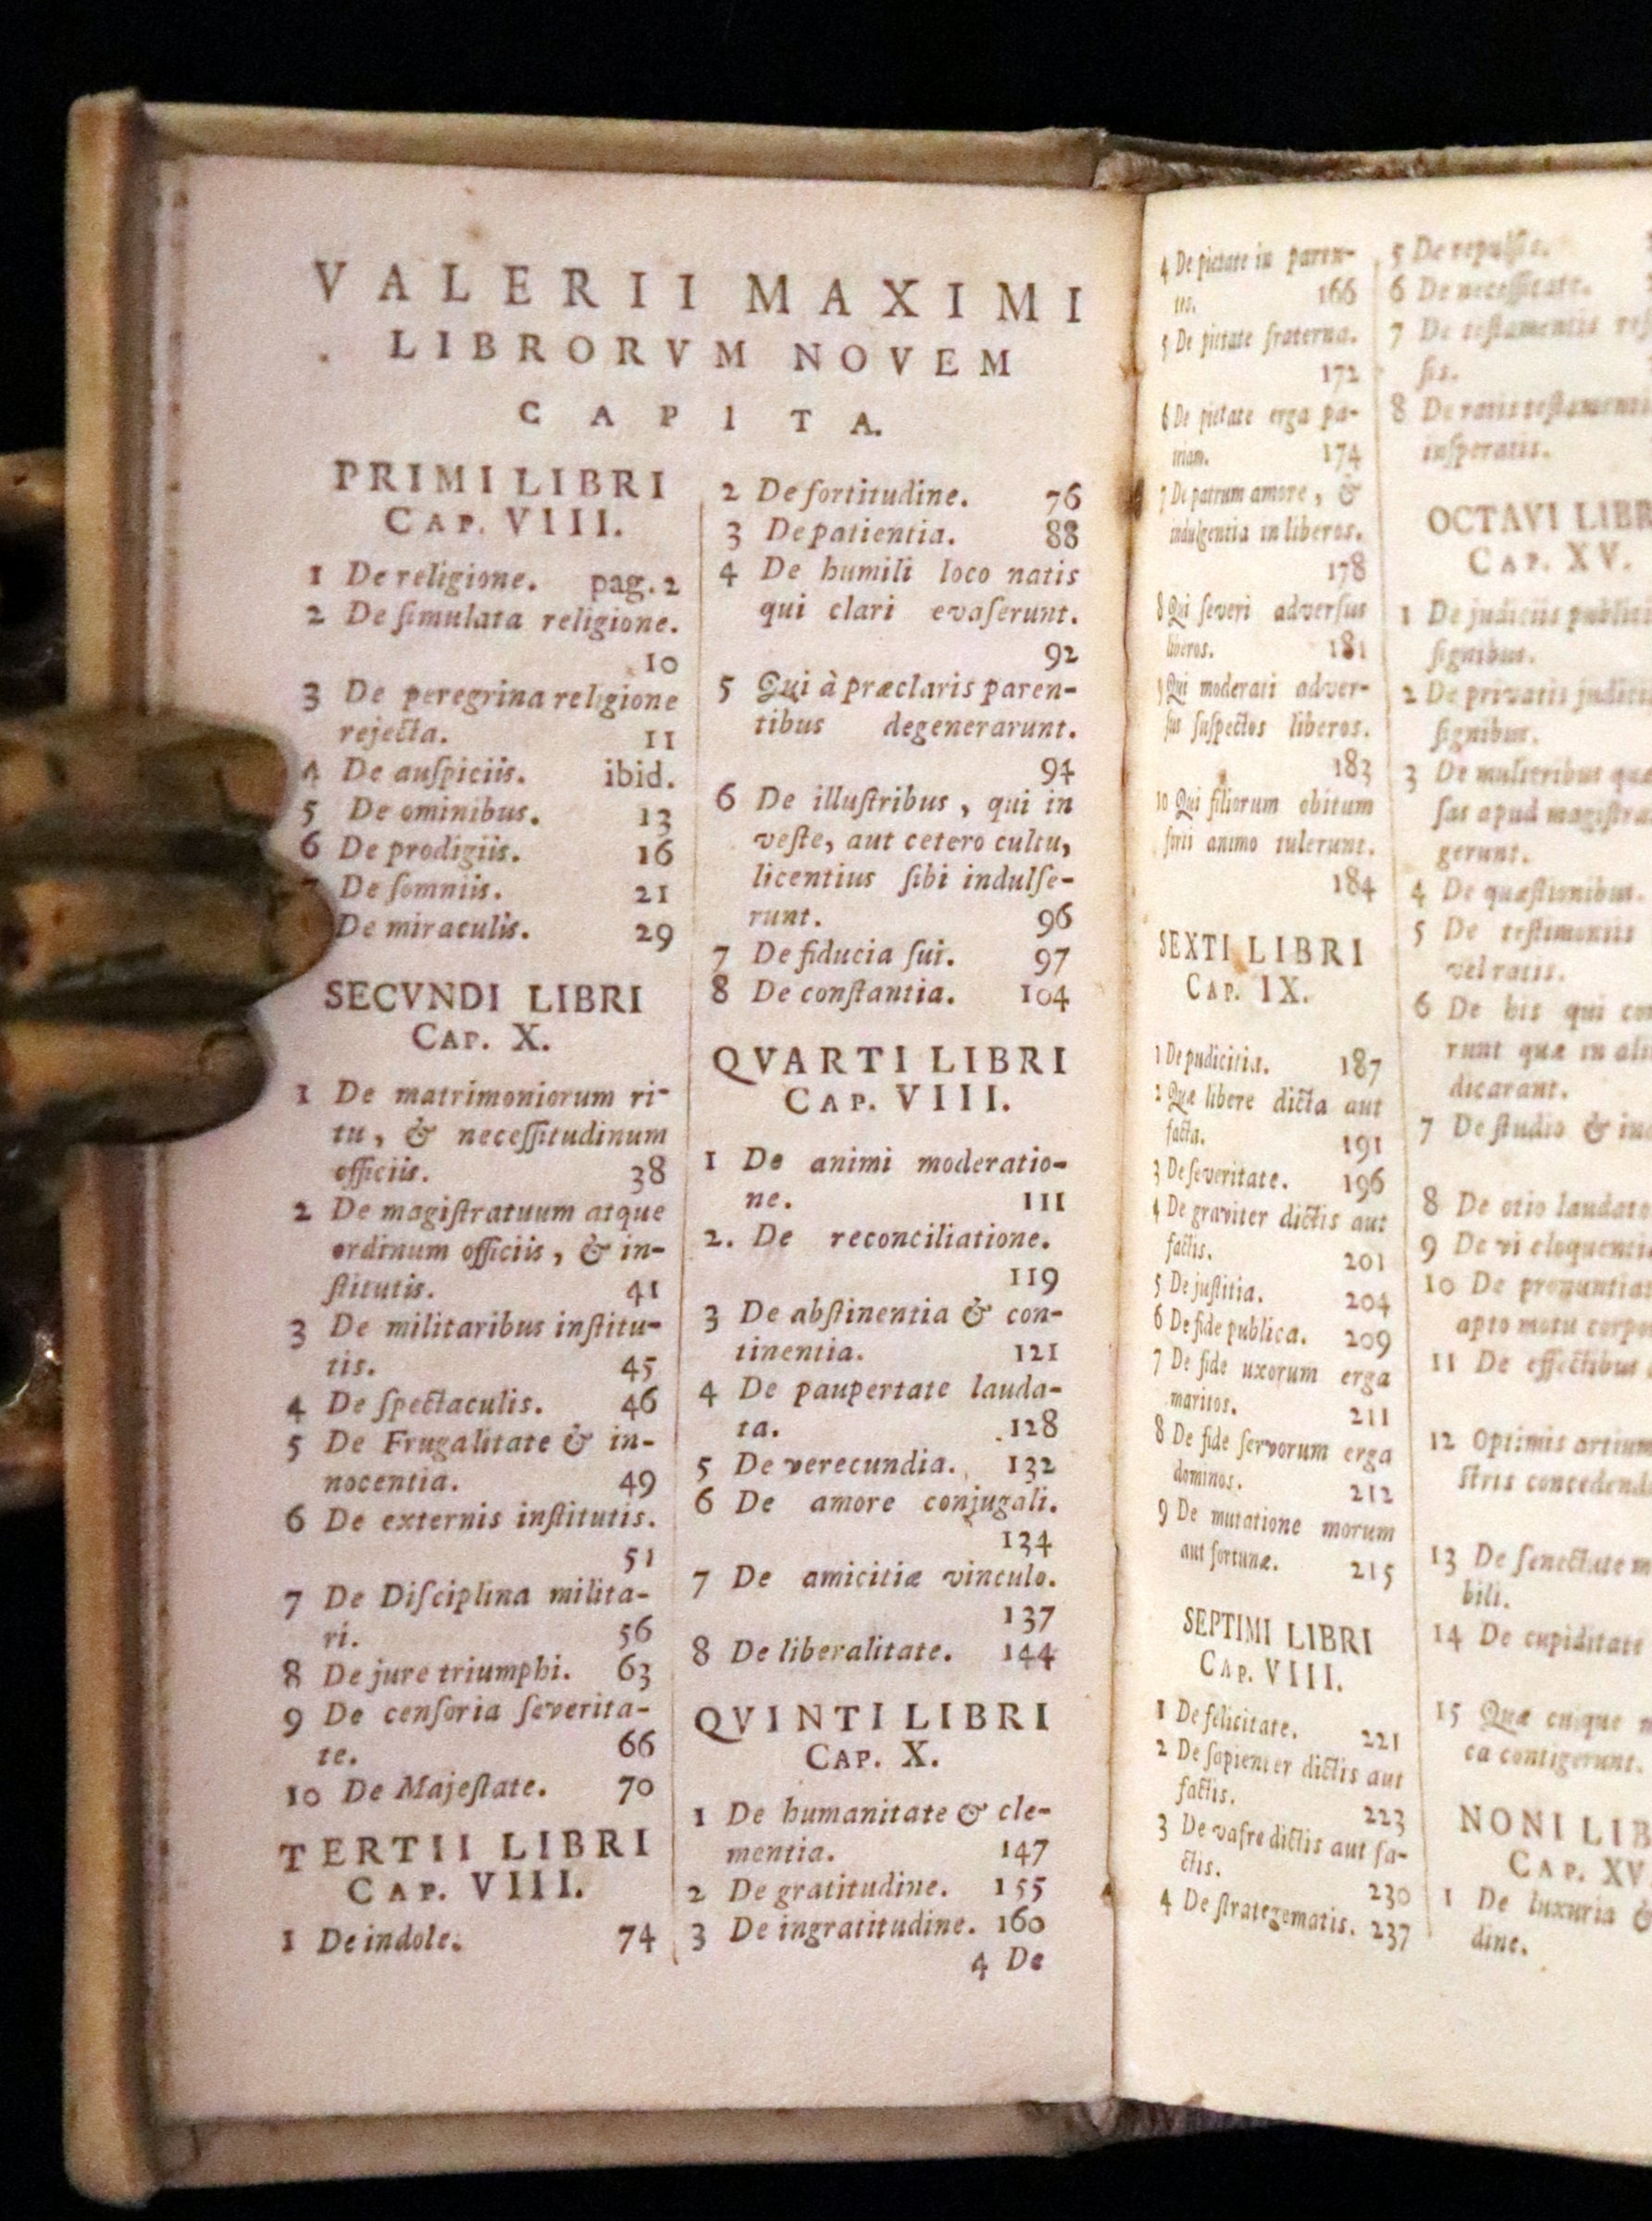 VALERII MAXIMI
LIBRORVM NOVEM
CAPITA.
PRIMI LIBRI
CAP. VIII.
1 De religione. pag. 2
2 De ſimulata religione.
10
3 De peregrina religione
rejecta. 11
4 De auſpiciis. ibid.
5 De ominibus. 13
6 De prodigiis. 16
De ſomniis. 21
De miraculis. 29
SECVNDI LIBRI
CAP. X.
1 De matrimoniorum ri-
tu, & neceſſitudinum
officiis. 38
2 De magiſtratuum atque
ordinum officiis, & in-
ſtitutis. 41
3 De militaribus inſtitu-
tis. 45
4 De ſpectaculis. 46
5 De Frugalitate & in-
nocentia. 49
6 De externis inſtitutis.
51
7 De Diſciplina milita-
ri. 56
8 De jure triumphi. 63
9 De cenſoria ſeverita-
te. 66
10 De Majeſtate. 70
TERTII LIBRI
CAP. VIII.
1 De indole. 74
2 De fortitudine. 76
3 De patientia. 88
4 De humili loco natis
qui clari evaſerunt.
92
5 Qui à præclaris paren-
tibus degenerarunt.
94
6 De illuſtribus, qui in
veſte, aut cetero cultu,
licentius ſibi indulſe-
runt. 96
7 De fiducia ſui. 97
8 De conſtantia. 104
QVARTI LIBRI
CAP. VIII.
1 De animi moderatio-
ne. 111
2. De reconciliatione.
119
3 De abſtinentia & con-
tinentia. 121
4 De paupertate lauda-
ta. 128
5 De verecundia. 132
6 De amore conjugali.
134
7 De amicitiæ vinculo.
137
8 De liberalitate. 144
QVINTI LIBRI
CAP. X.
1 De humanitate & cle-
mentia. 147
2 De gratitudine. 155
3 De ingratitudine. 160
4 De
4 De pietate in paren-
tes. 166
5 De pietate fraterna.
172
6 De pietate erga pa-
triam. 174
7 De patrum amore, &
indulgentia in liberos.
178
8 Qui ſeveri adverſus
liberos. 181
9 Qui moderati adver-
ſus ſuſpectos liberos.
183
10 Qui filiorum obitum
forti animo tulerunt.
184
SEXTI LIBRI
CAP. IX.
1 De pudicitia. 187
2 Quæ libere dicta aut
facta. 191
3 De ſeveritate. 196
4 De graviter dictis aut
factis. 201
5 De juſtitia. 204
6 De fide publica. 209
7 De fide uxorum erga
maritos. 211
8 De fide ſervorum erga
dominos. 212
9 De mutatione morum
aut fortunæ. 215
SEPTIMI LIBRI
CAP. VIII.
1 De felicitate. 221
2 De ſapienter dictis aut
factis. 223
3 De vafre dictis aut fa-
ctis. 230
4 De ſtrategematis. 237
5 De repulſis.
6 De neceſſitate.
7 De teſtamentis reſ
ſis.
8 De ratis teſtamenti
inſperatis.
OCTAVI LIBR
CAP. XV.
1 De judiciis public
ſignibus.
2 De privatis judici
ſignibus.
3 De mulieribus quæ
ſas apud magiſtra
gerunt.
4 De quæſtionibus.
5 De teſtimoniis
vel ratis.
6 De his qui co
runt quæ in ali
dicarant.
7 De ſtudio & in
8 De otio laudato
9 De vi eloquenti
10 De pronuntiat
apto motu corpo
11 De effectibus
12 Optimis artium
ſtris concedend
13 De ſenectute m
bili.
14 De cupiditate
15 Quæ cuique m
ca contigerunt.
NONI LIB
CAP. XV
1 De luxuria &
dine.